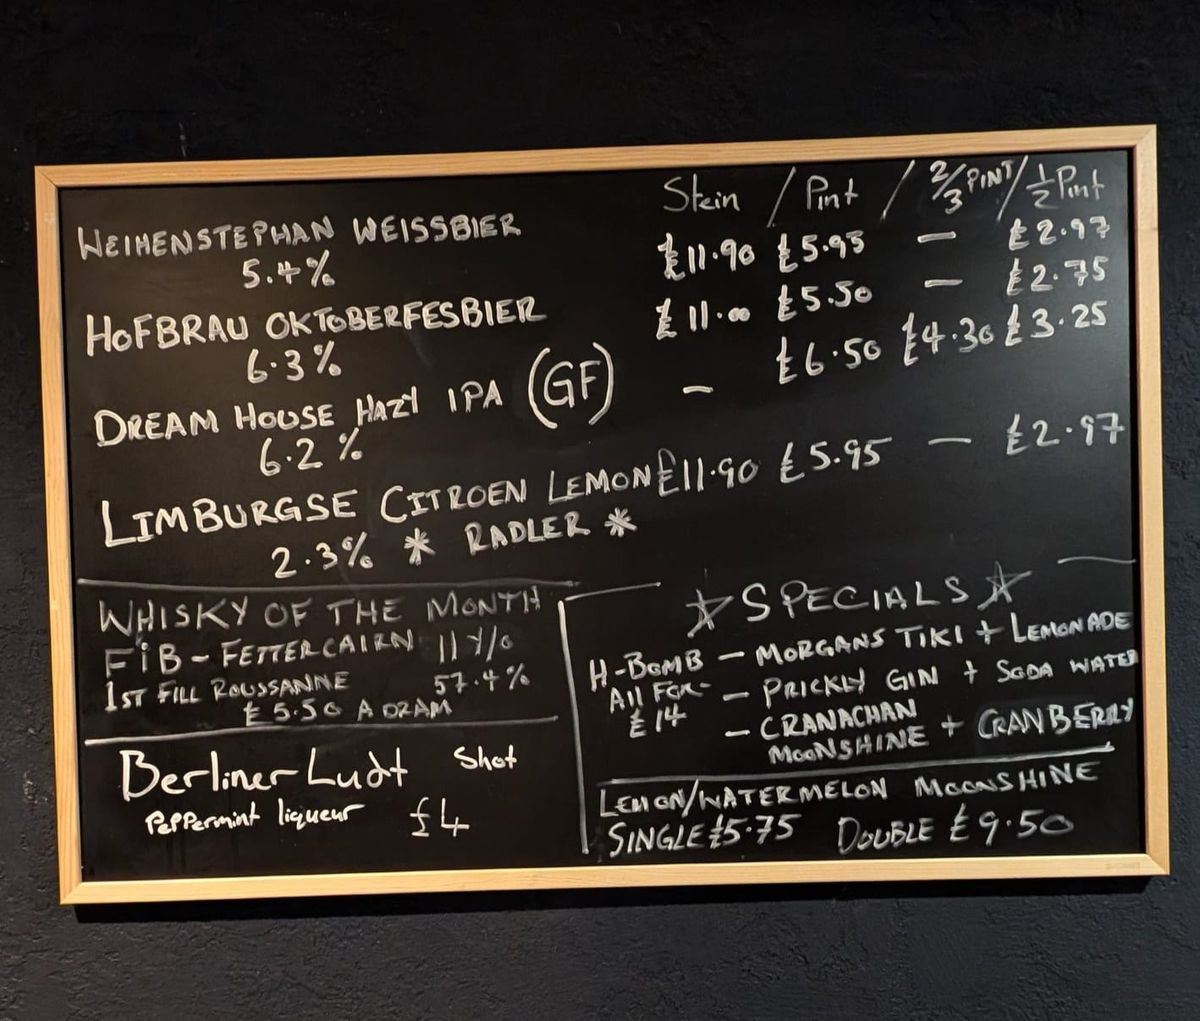 Stein / Pint / 2/3 PINT / 1/2 Pint
WEIHENSTEPHAN WEISSBIER £11.90 £5.95 — £2.97
5.4%
HOFBRAU OKTOBERFESBIER £11.00 £5.50 — £2.75
6.3%
DREAM HOUSE HAZY IPA (GF) — £6.50 £4.30 £3.25
6.2%
LIMBURGSE CITROEN LEMON £11.90 £5.95 — £2.97
2.3% * RADLER *
WHISKY OF THE MONTH
FiB - FETTERCAIRN 11 Y/O
1ST FILL ROUSSANNE 57.4%
£5.50 A DRAM
Berliner Ludt Shot
Peppermint liqueur £4
☆ SPECIALS ☆
H-BOMB — MORGANS TIKI + LEMONADE
All FOR — PRICKLY GIN + SODA WATER
£14 — CRANACHAN
MOONSHINE + CRANBERRY
LEMON/WATERMELON MOONSHINE
SINGLE £5.75 DOUBLE £9.50